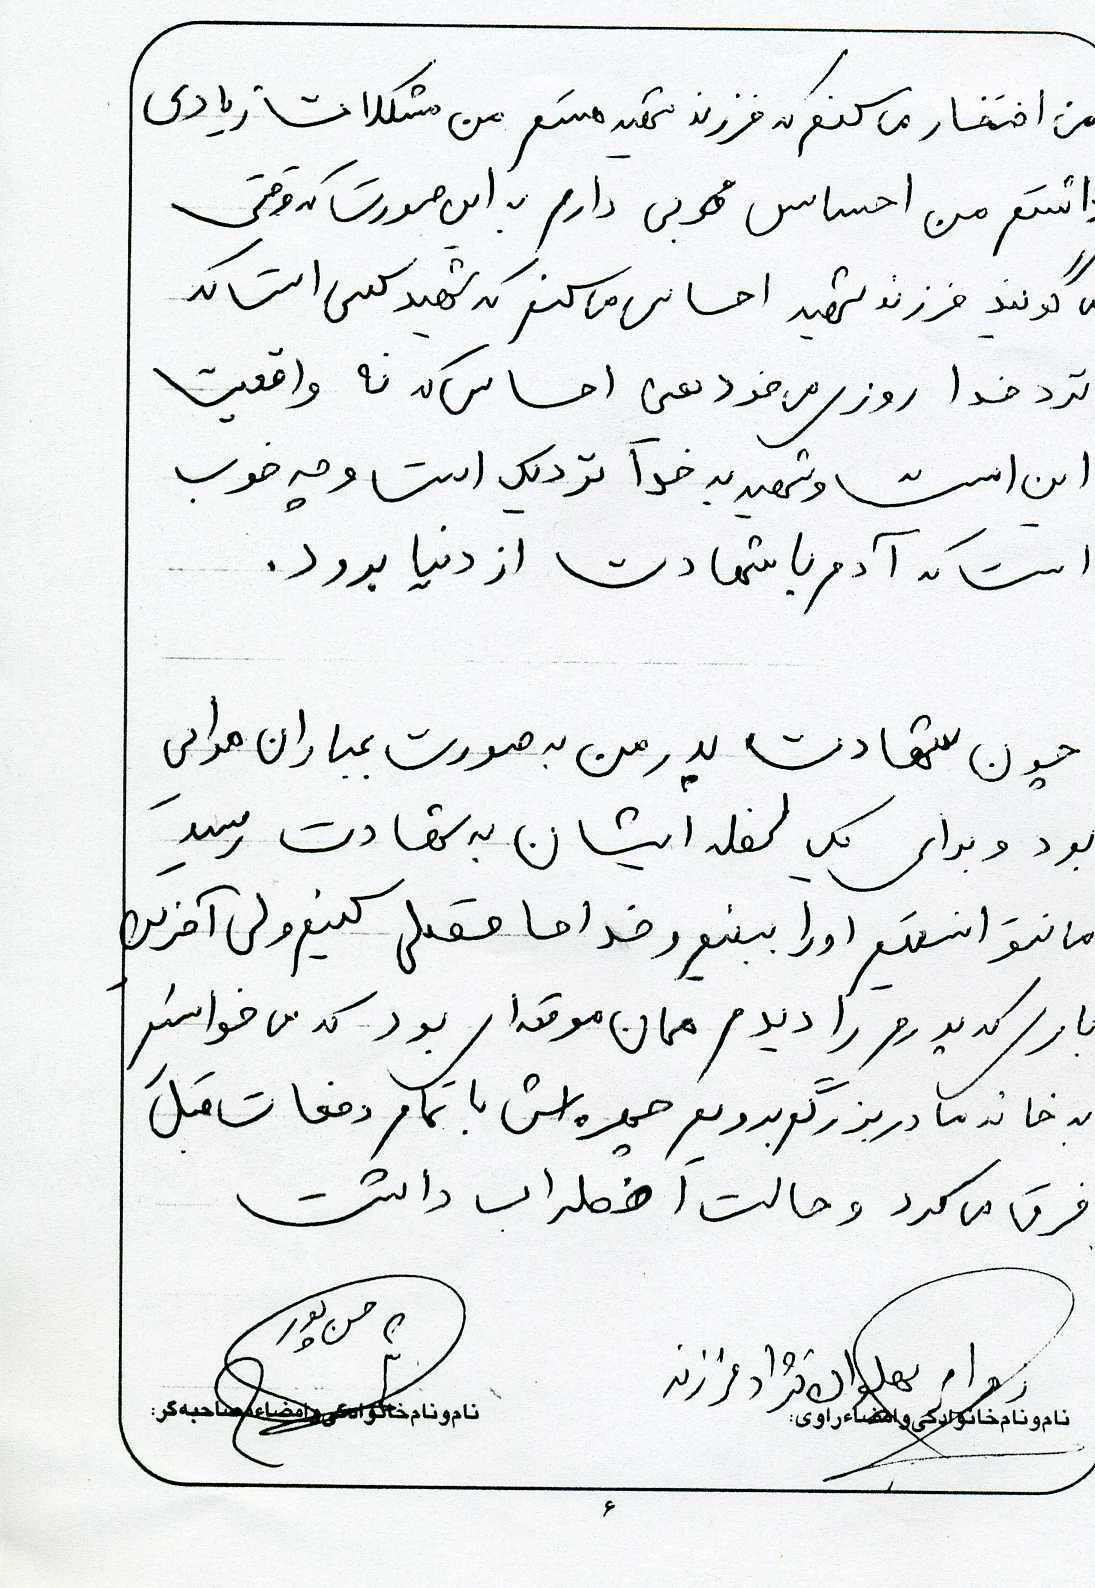 من افتخار می کنم که فرزند شهید هستم من مشکلات زیادی
داشتم من احساس خوبی دارم به این صورت که وقتی
می گویند فرزند شهید احساس می کنم که شهید کسی است که
نزد خدا روزی می خورد یعنی احساس که نه واقعیت
این است و شهید به خدا نزدیک است و چه خوب
است که آدم با شهادت از دنیا برود.
چون شهادت پدر من به صورت بمباران هوایی
بود و برای یک لحظه ایشان به شهادت رسید
ما نتوانستیم او را ببینیم و خداحافظی کنیم ولی آخرین
باری که پدرم را دیدم همان موقعه ای بود که می خواستیم
به خانه مادربزرگم برویم چهره اش با تمام دفعات قبل
فرق می کرد و حالت اضطراب داشت
حسن پور
پهلوان نژاد فرزند
نام و نام خانوادگی و امضاء راوی:
نام و نام خانوادگی و امضاء مصاحبه گر:
۶